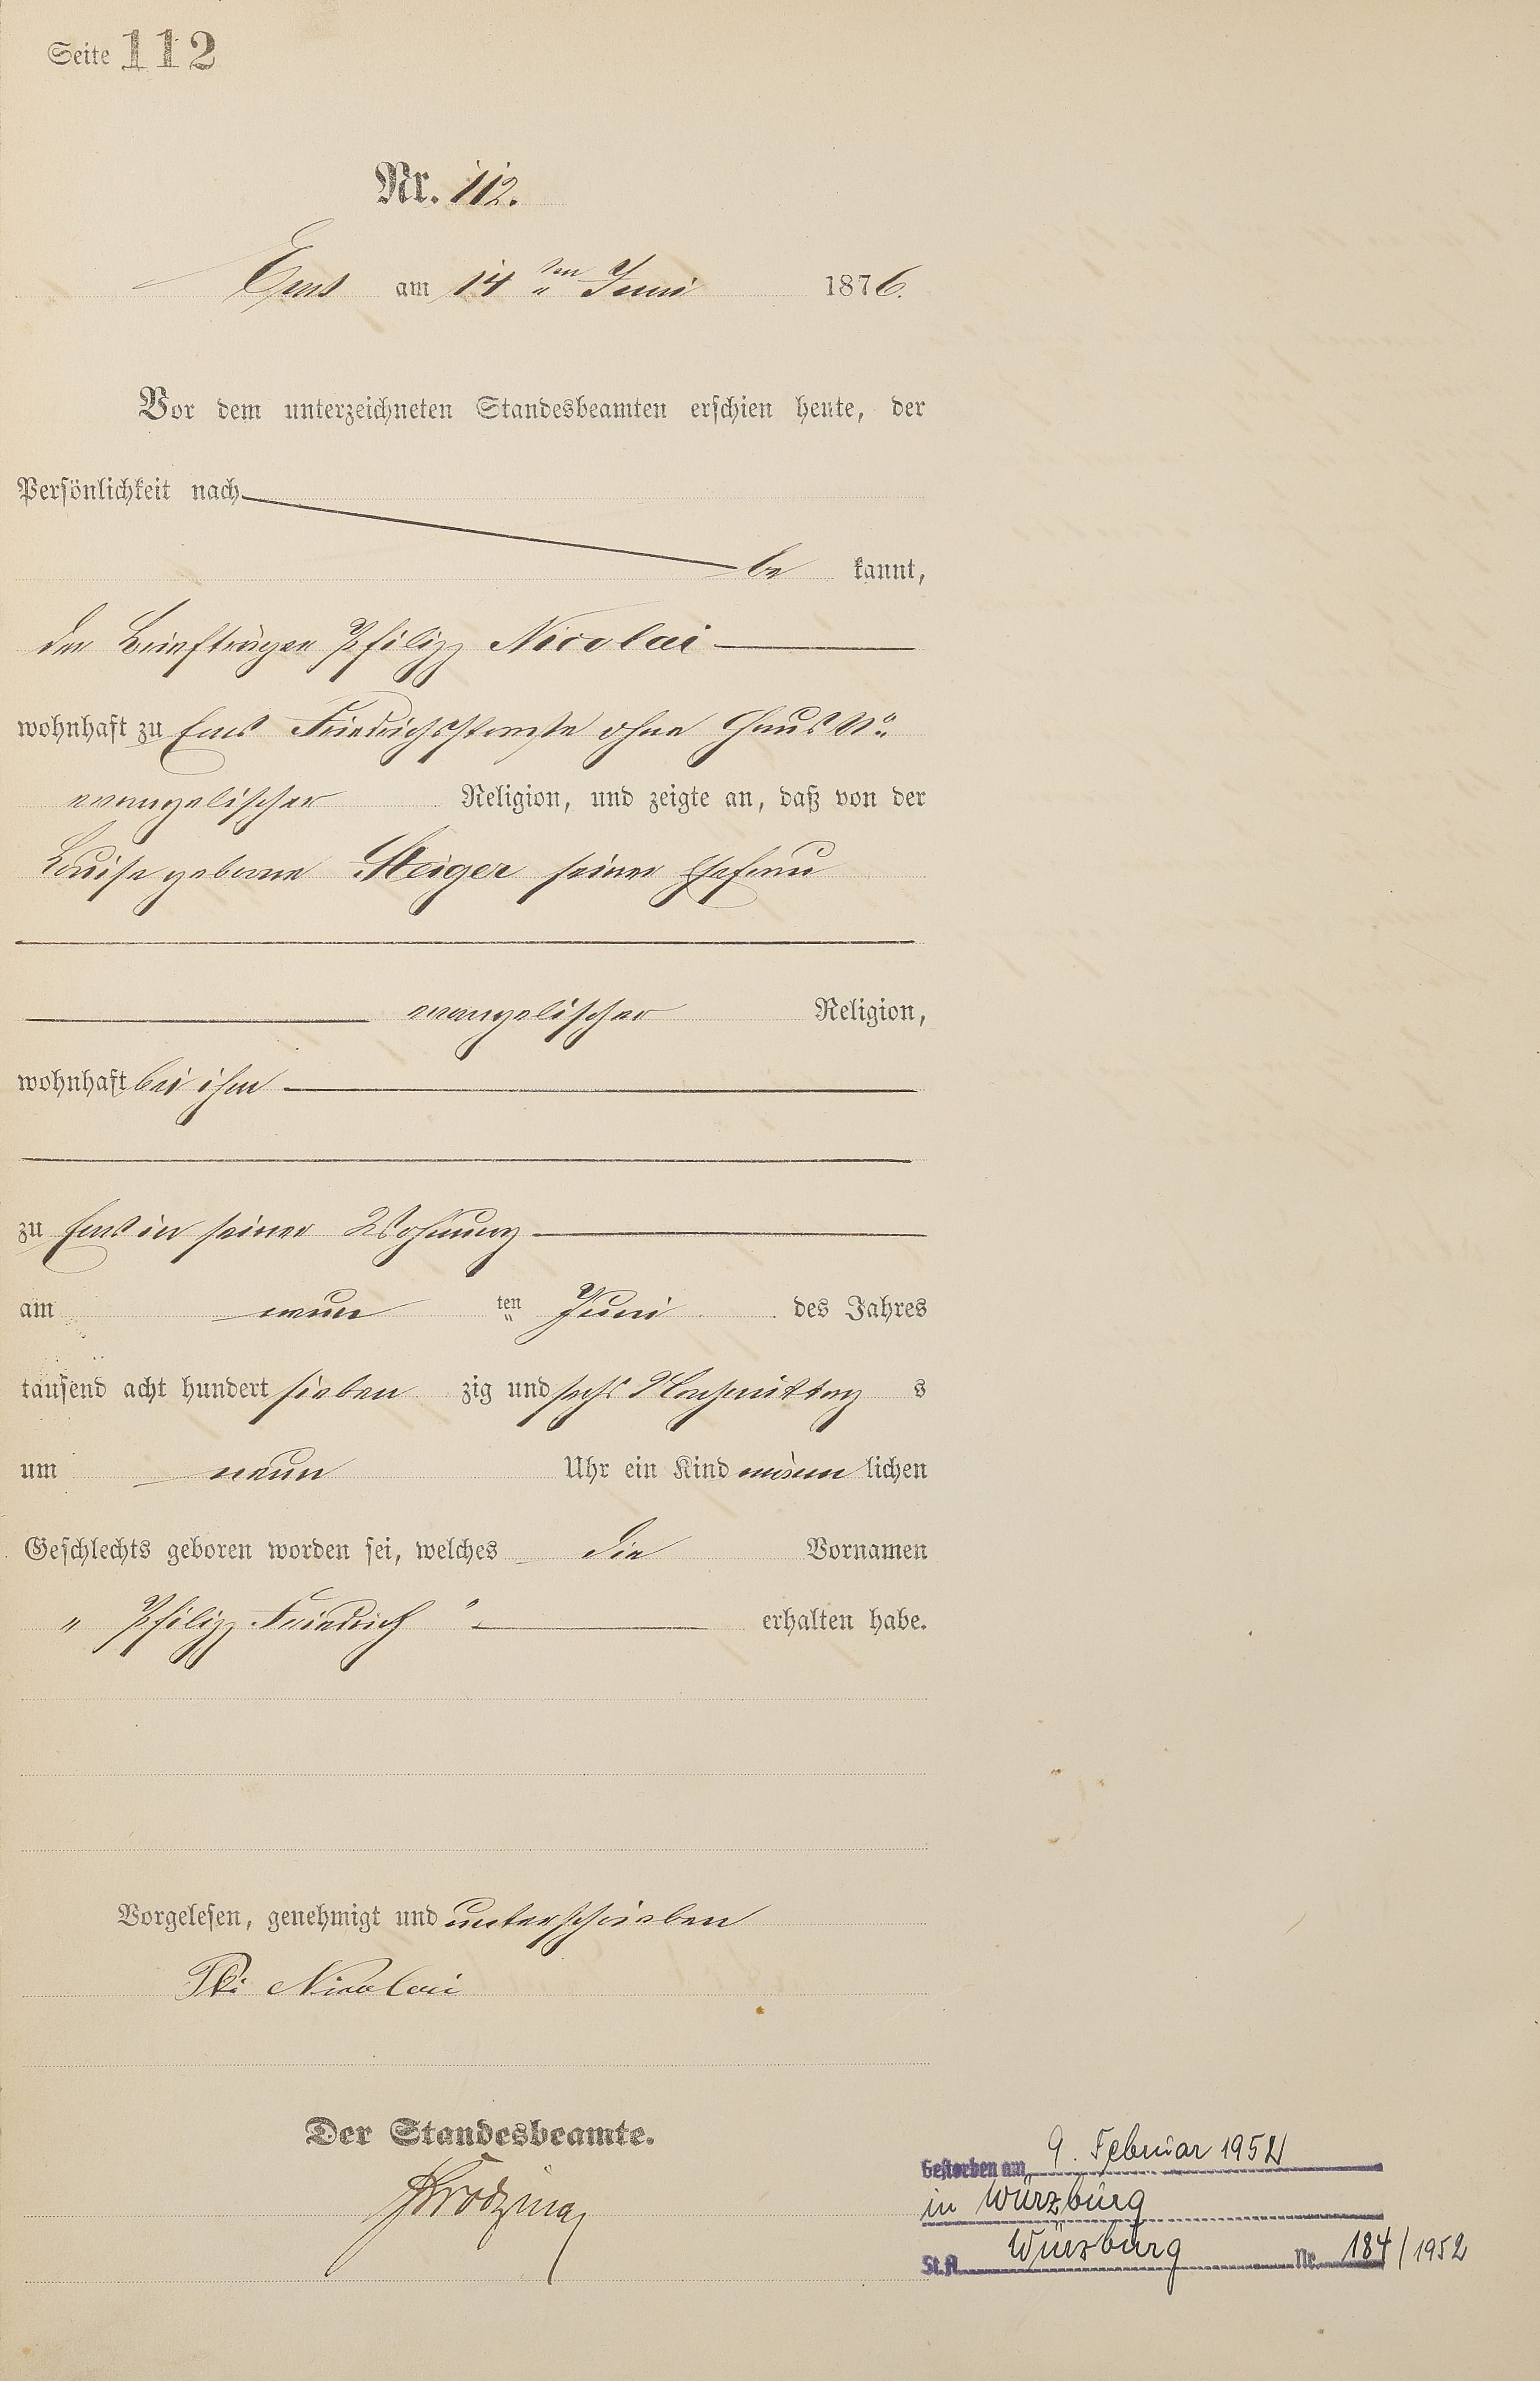 Seite 112
Nr. 112.
Ems am 14ten Juni 1876.
Vor dem unterzeichneten Standesbeamten erschien heute, der
Persönlichkeit nach
be kannt,
der Briefträger Philipp Nicolai
wohnhaft zu Ems Friedrichsstraße ohne Haus No
evangelischer Religion, und zeigte an, daß von der
Louise geborne Steiger seiner Ehefrau
evangelischer Religion,
wohnhaft bei ihm
zu Ems in seiner Wohnung
am neun ten Juni des Jahres
tausend acht hundert sieben zig und sechs Nachmittag s
um neun Uhr ein Kind männ lichen
Geschlechts geboren worden sei, welches die Vornamen
„ Philipp Friedrich “ erhalten habe.
Vorgelesen, genehmigt und unterschrieben
Ph: Nicolai
Der Standesbeamte.
Gestorben am 9. Februar 1952
in Würzburg
St.A. Würzburg Nr. 184/1952